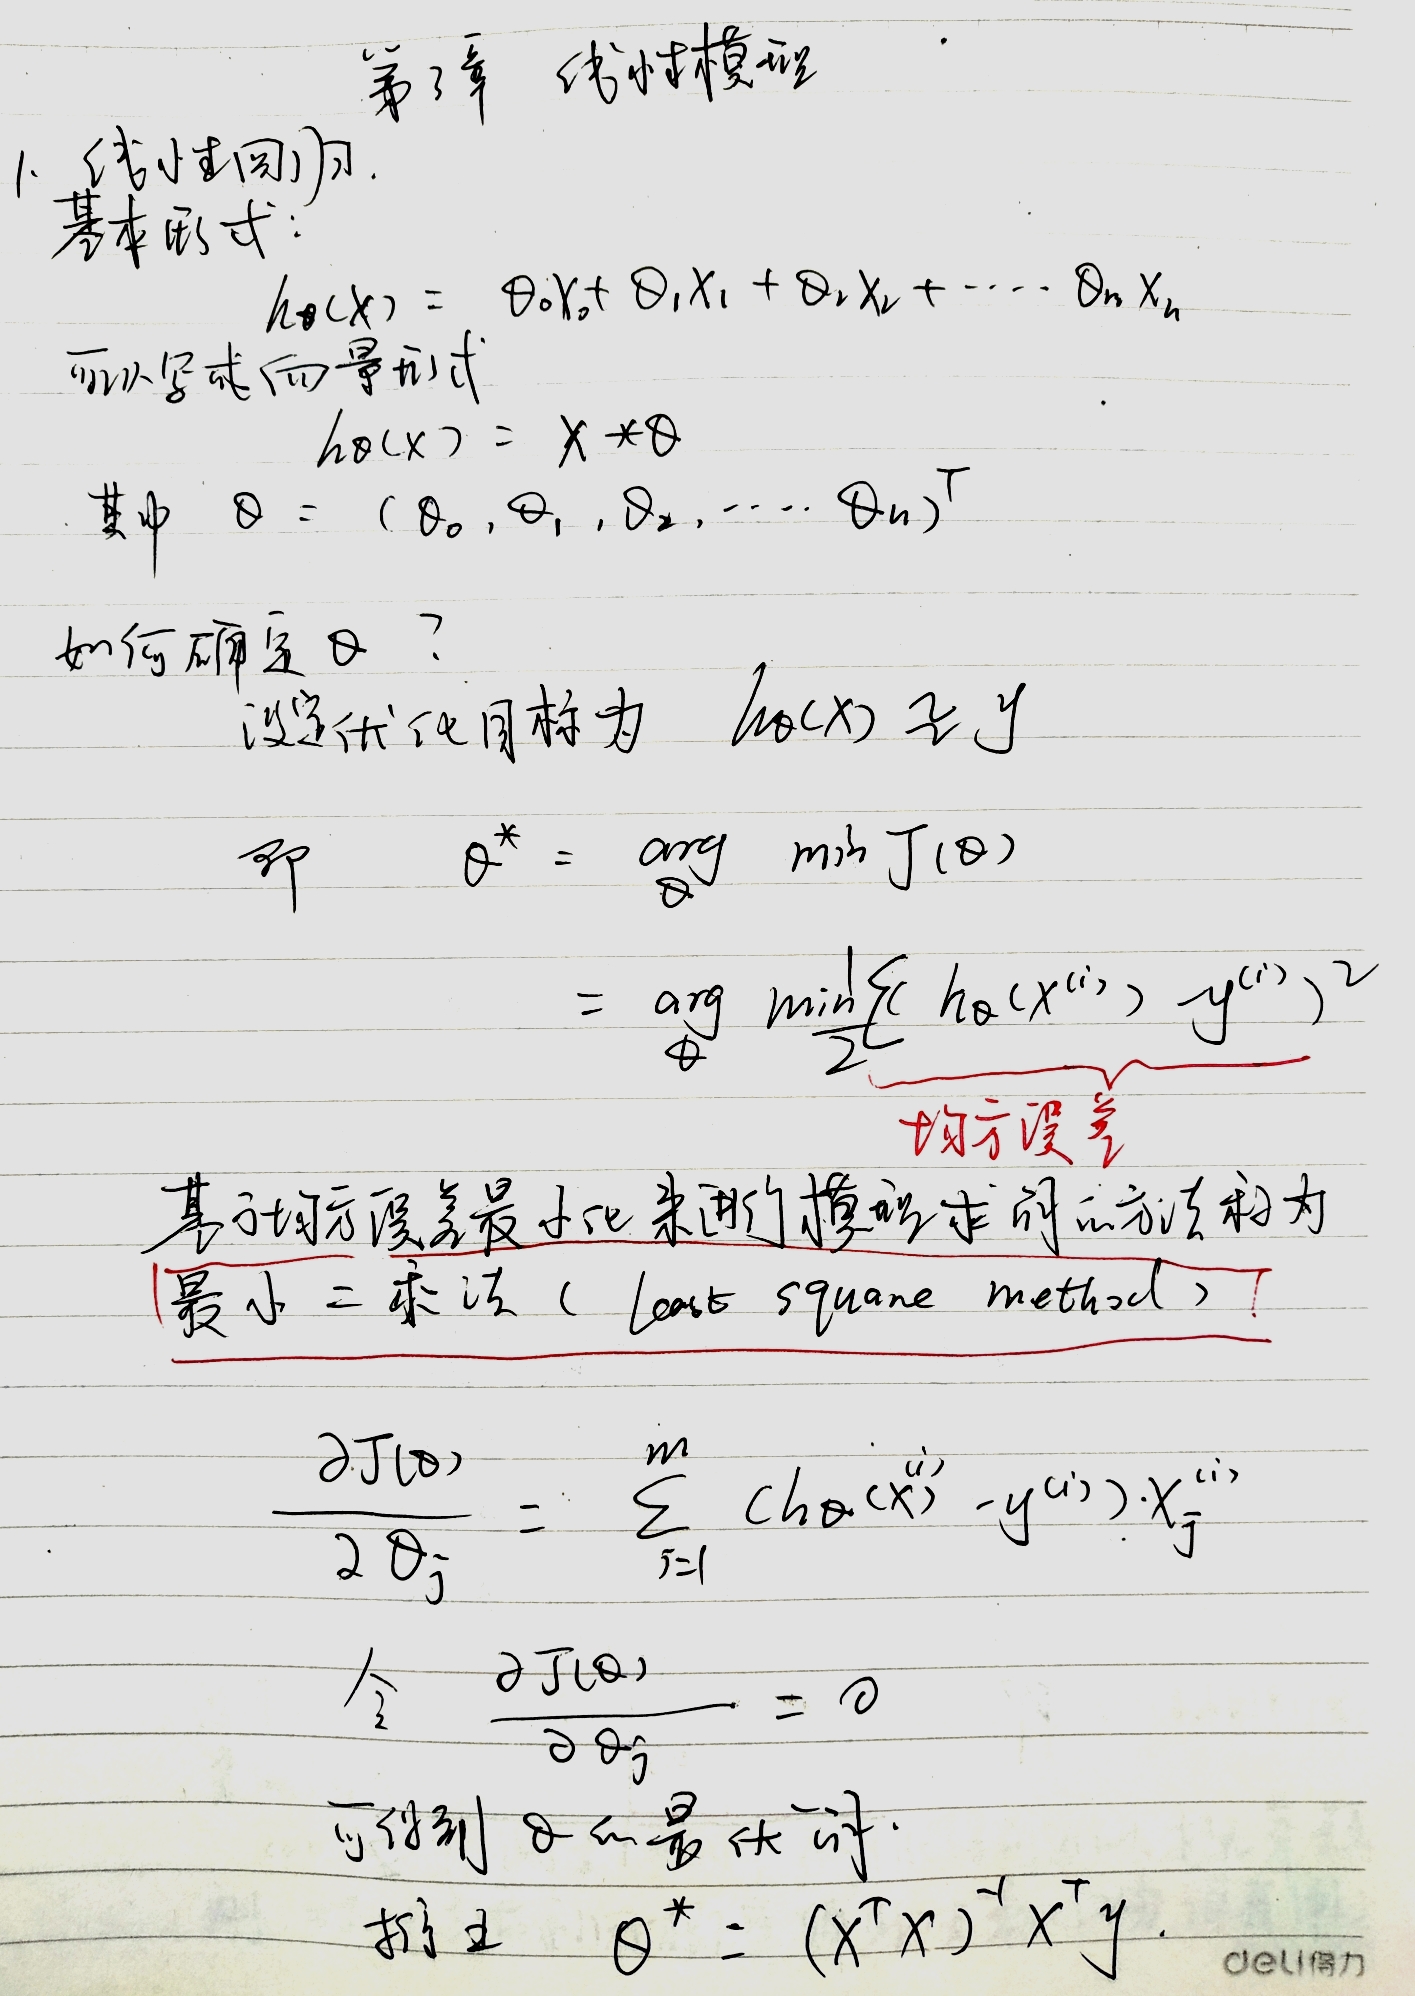 第3章 线性模型
1. 线性回归.
基本形式:
hθ(x) = θ₀x₀+ θ₁x₁ + θ₂x₂ + ····· θₙ xₙ
可以写成向量形式
hθ(x) = X *θ
其中 θ = (θ₀, θ₁, θ₂, ····· θₙ)ᵀ
如何确定θ ?
设定优化目标为 hθ(x) ≌ y
即 θ* = arg min J(θ)
θ
= arg min 1/2 Σ( hθ(x⁽ⁱ⁾) - y⁽ⁱ⁾)²
θ
均方误差
基于均方误差最小化来进行模型求解的方法称为
最小二乘法 ( least square method )
∂J(θ)/∂θⱼ = Σ_{i=1}^{m} (hθ(x⁽ⁱ⁾) - y⁽ⁱ⁾)·xⱼ⁽ⁱ⁾
令 ∂J(θ)/∂θⱼ = 0
可得到 θ的最优解.
θ* = (XᵀX)⁻¹ Xᵀy.
deli得力